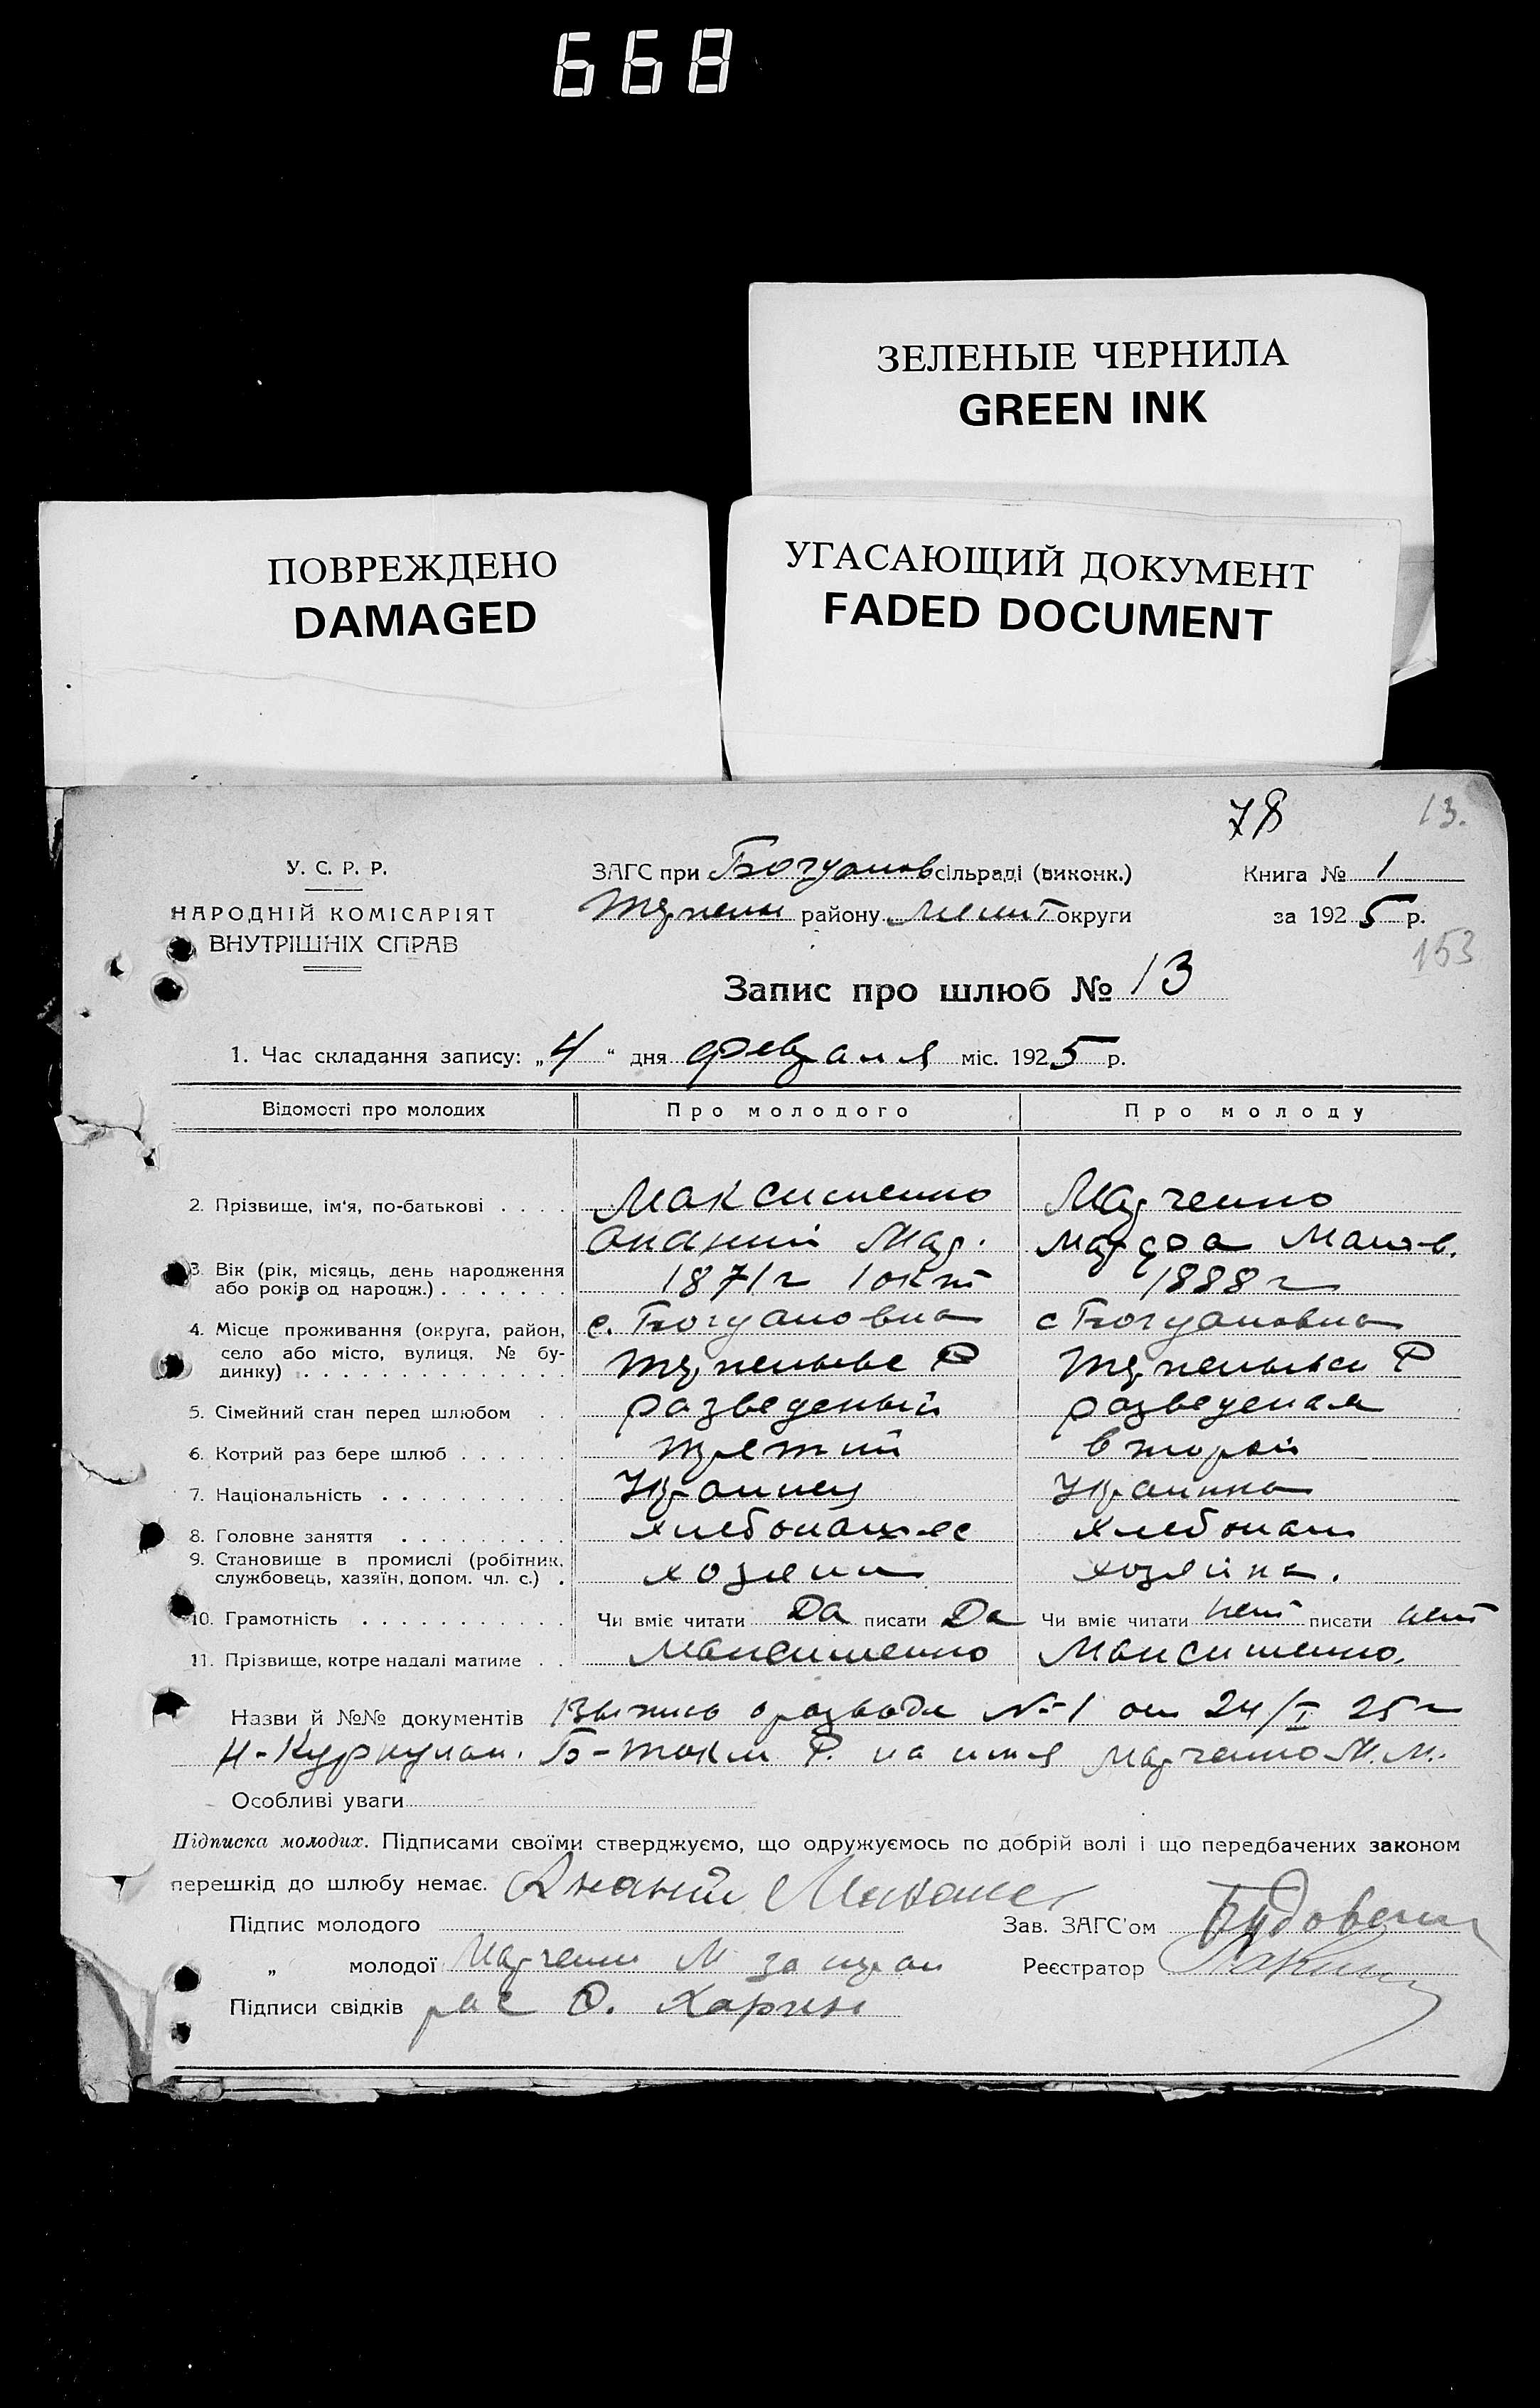 668
ЗЕЛЕНЫЕ ЧЕРНИЛА
GREEN INK
ПОВРЕЖДЕНО
DAMAGED
УГАСАЮЩИЙ ДОКУМЕНТ
FADED DOCUMENT
78 13.
У. С. Р. Р.
НАРОДНІЙ КОМІСАРІЯТ
ВНУТРІШНІХ СПРАВ
ЗАГС при Богданов сільраді (виконк.)
району Мелит округи
Книга № 1
за 1925 р.
153
Запис про шлюб № 13
1. Час складання запису: „4“ дня февраля міс. 1925 р.
Відомості про молодих Про молодого Про молоду
2. Прізвище, ім'я, по-батькові . . . . Максименко Марченко
Ананий Мар. Марфа
3. Вік (рік, місяць, день народження
або років од народж.) . . . . . . . 1871 г 1 окт 1888 г
4. Місце проживання (округа, район, с. Богдановка с Богдановка
село або місто, вулиця, № бу-
динку) . . . . . . . . . . . . . . Р Р
5. Сімейний стан перед шлюбом . . разведеный разведеная
6. Котрий раз бере шлюб . . . . . . третий второй
7. Національність . . . . . . . . . . Украинец Украинка
8. Головне заняття . . . . . . . . . хлебопаш
9. Становище в промислі (робітник,
службовець, хазяїн, допом. чл. с.) . хозяин хозяйка.
10. Грамотність . . . . . . . . . . . Чи вміє читати Да писати Да Чи вміє читати нет писати нет
11. Прізвище, котре надалі матиме . . Максименко Максименко.
Назви й №№ документів Выпись о разводе № 1 от 24/I 25 г
Б-Токм Р. на имя Марченко М. М.
Особливі уваги
Підписка молодих. Підписами своїми стверджуємо, що одружуємось по добрій волі і що передбачених законом
перешкід до шлюбу немає. Ананий
Підпис молодого
Зав. ЗАГС'ом
„ молодої Марченко М за
Реєстратор
Підписи свідків рас О.